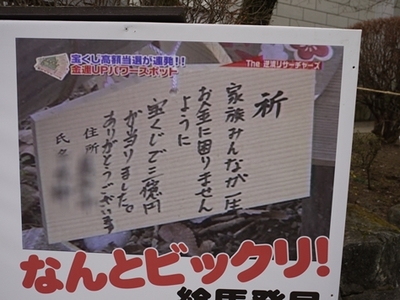 宝くじ高額当選が連発!!
金運UPパワースポット
The 逆流リサーチャーズ
祈
家族みんなが一生
お金に困りません
ように
宝くじで三億円
が当りました。
ありがとうございます
住所
氏名
なんとビックリ!
絵馬発見